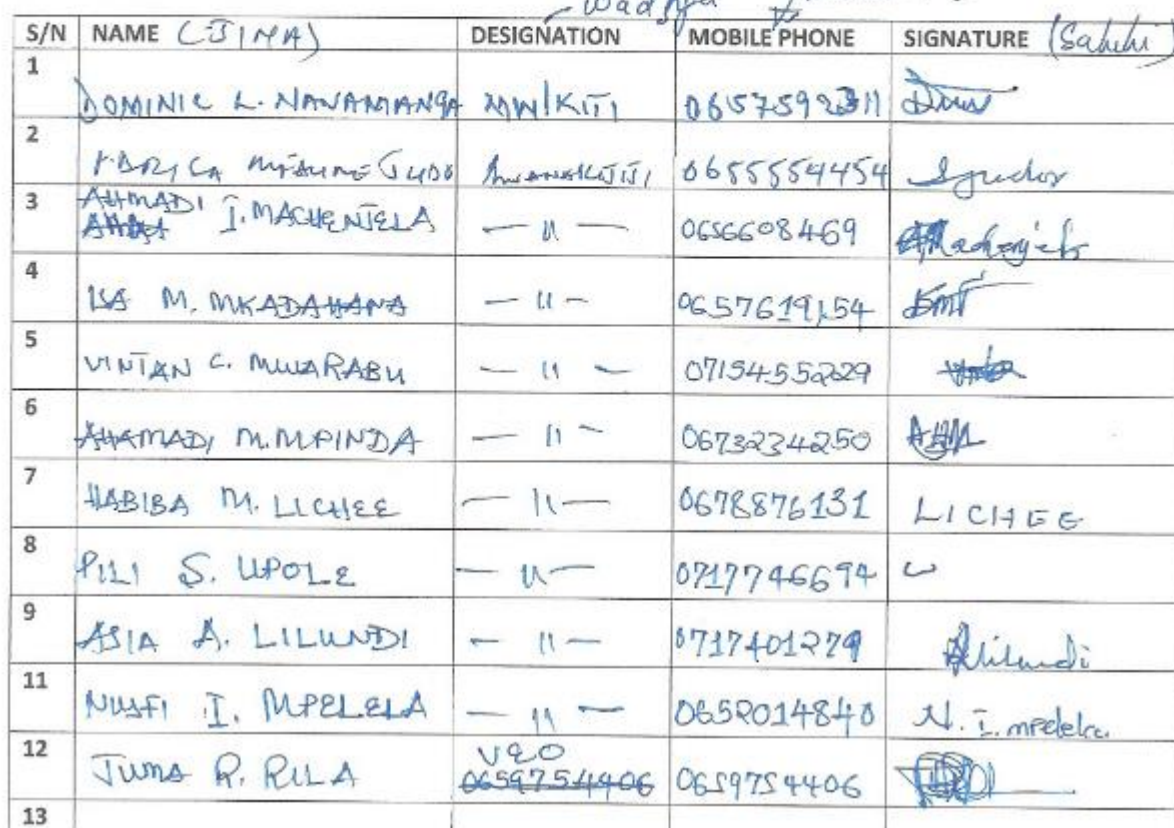 Wadhifa
S/N NAME (JINA) DESIGNATION MOBILE PHONE SIGNATURE (Sahihi)
1 DOMINIC L. NAVAMANGA MW/KITI 0657592311
2 0655554454
3 AHMADI I. MACHENJELA — 11 — 0656608469
4 ISA M. MKADAHANA — 11 — 0657619154
5 VINTAN C. MWARABU — 11 — 0715455229
6 AHAMADI M. MPINDA — 11 — 0673234250
7 HABIBA M. LICHEE — 11 — 0678876131 LICHEE
8 PILI S. UPOLE — 11 — 0717746694
9 ASIA A. LILUNDI — 11 — 0717401279 Alilundi
11 I. MPELELA — 11 — 0652014840 N. I. mpelela
12 JUMA R. RILA VEO 0659754406 0659754406
13